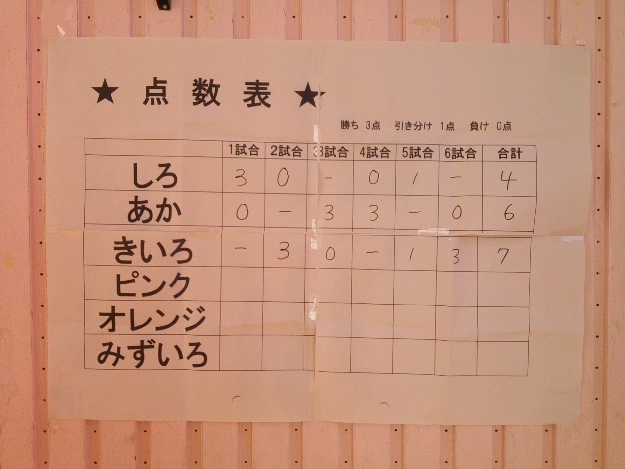 ★ 点数表 ★
勝ち 3点 引き分け 1点 負け 0点
1試合 2試合 3試合 4試合 5試合 6試合 合計
しろ 3 0 - 0 1 - 4
あか 0 - 3 3 - 0 6
きいろ - 3 0 - 1 3 7
ピンク
オレンジ
みずいろ